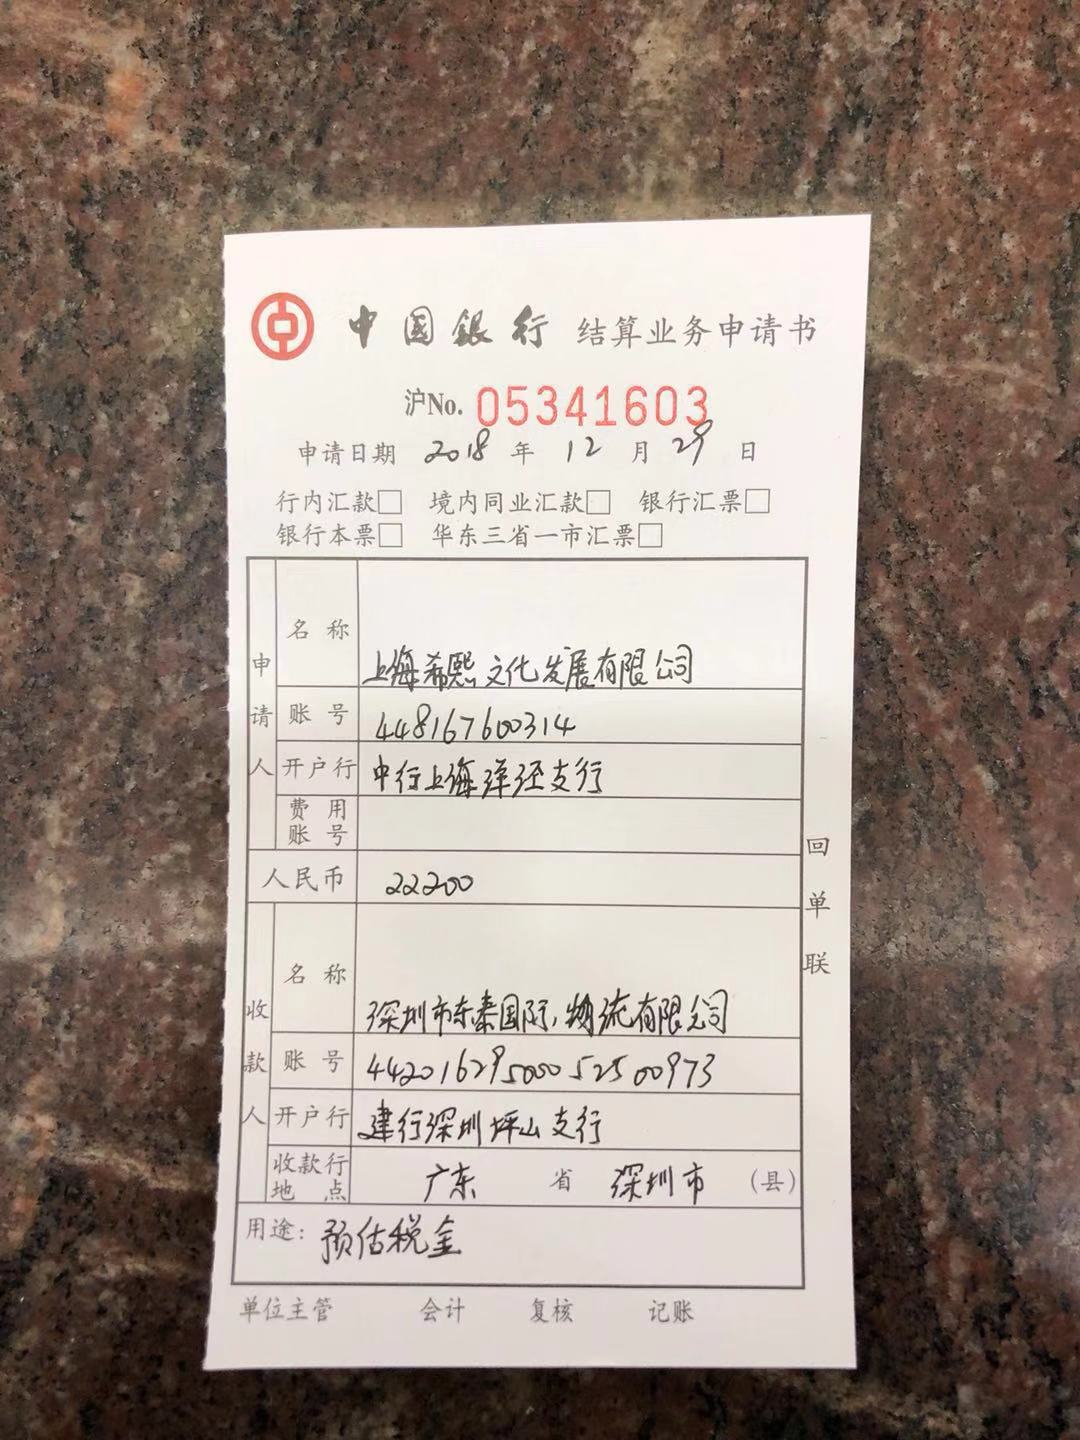 中国银行 结算业务申请书
沪No. 05341603
申请日期 2018 年 12 月 29 日
行内汇款□ 境内同业汇款□ 银行汇票□
银行本票□ 华东三省一市汇票□
申请人
名称 上海希熙文化发展有限公司
账号 448167600314
开户行 中行上海洋泾支行
费用账号
人民币 22200
收款人
名称 深圳市东泰国际物流有限公司
账号 44201629500052500973
开户行 建行深圳坪山支行
收款行地点 广东 省 深圳市 (县)
用途: 预估税金
回单联
单位主管 会计 复核 记账